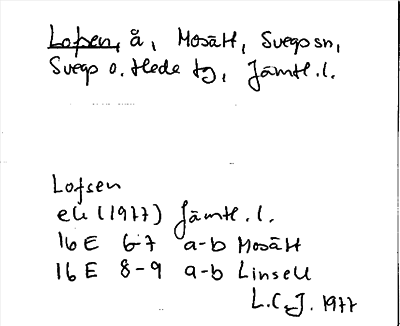 Lofsen, å, Mosätt, Svegs sn,
Svegs o. Hede tg, Jämtl. l.
Lofsen
ek (1977) Jämtl. l.
16 E 6-7 a-b Mosätt
16 E 8-9 a-b Linsell
L.C.J. 1977